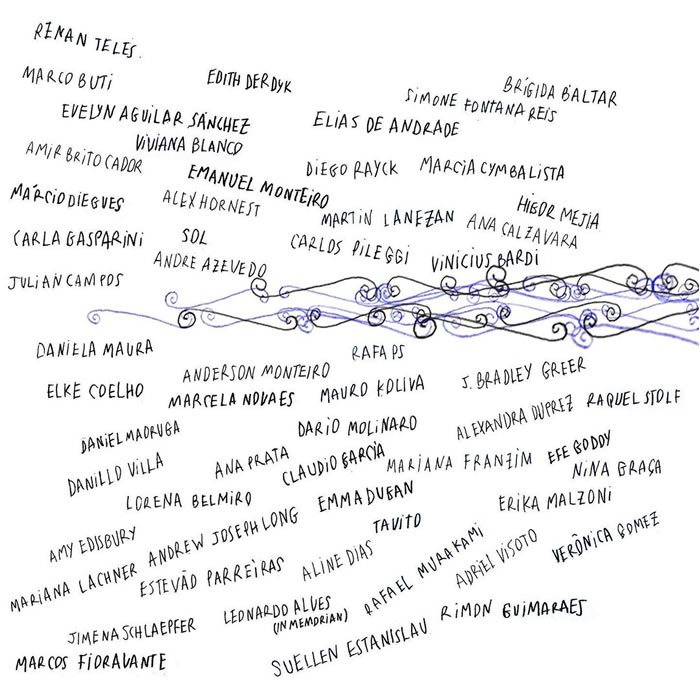 RENAN TELES.
MARCO BUTI
EDITH DERDYK
BRÍGIDA BALTAR
SIMONE FONTANA REIS
EVELYN AGUILAR SÁNCHEZ
ELIAS DE ANDRADE
VIVIANA BLANCO
AMIR BRITO CADOR
EMANUEL MONTEIRO
DIEGO RAYCK
MARCIA CYMBALISTA
MÁRCIO DIEGUES
ALEX HORNEST
MARTIN LANEZAN
HIGOR MEJIA
ANA CALZAVARA
CARLA GASPARINI
SOL
CARLOS PILEGGI
VINICIUS BARDI
ANDRE AZEVEDO
JULIAN CAMPOS
DANIELA MAURA
RAFA PS
ANDERSON MONTEIRO
J. BRADLEY GREER
ELKE COELHO
MARCELA NOVAES
MAURO KOLIVA
ALEXANDRA DUPREZ
RAQUEL STOLF
DANIEL MADRUGA
DARIO MOLINARO
DANILLO VILLA
ANA PRATA
CLAUDIO GARCÍA
MARIANA FRANZIM
EFE GODOY
NINA GRAÇA
LORENA BELMIRO
EMMA DUGAN
ERIKA MALZONI
AMY EDISBURY
ANDREW JOSEPH LONG
TAVITO
VERÔNICA GOMEZ
MARIANA LACHNER
ESTEVÃO PARREIRAS
ALINE DIAS
RAFAEL MURAKAMI
ADRIEL VISOTO
JIMENA SCHLAEPFER
LEONARDO ALVES
(IN MEMORIAN)
RIMON GUIMARAES
MARCOS FIORAVANTE
SUELLEN ESTANISLAU